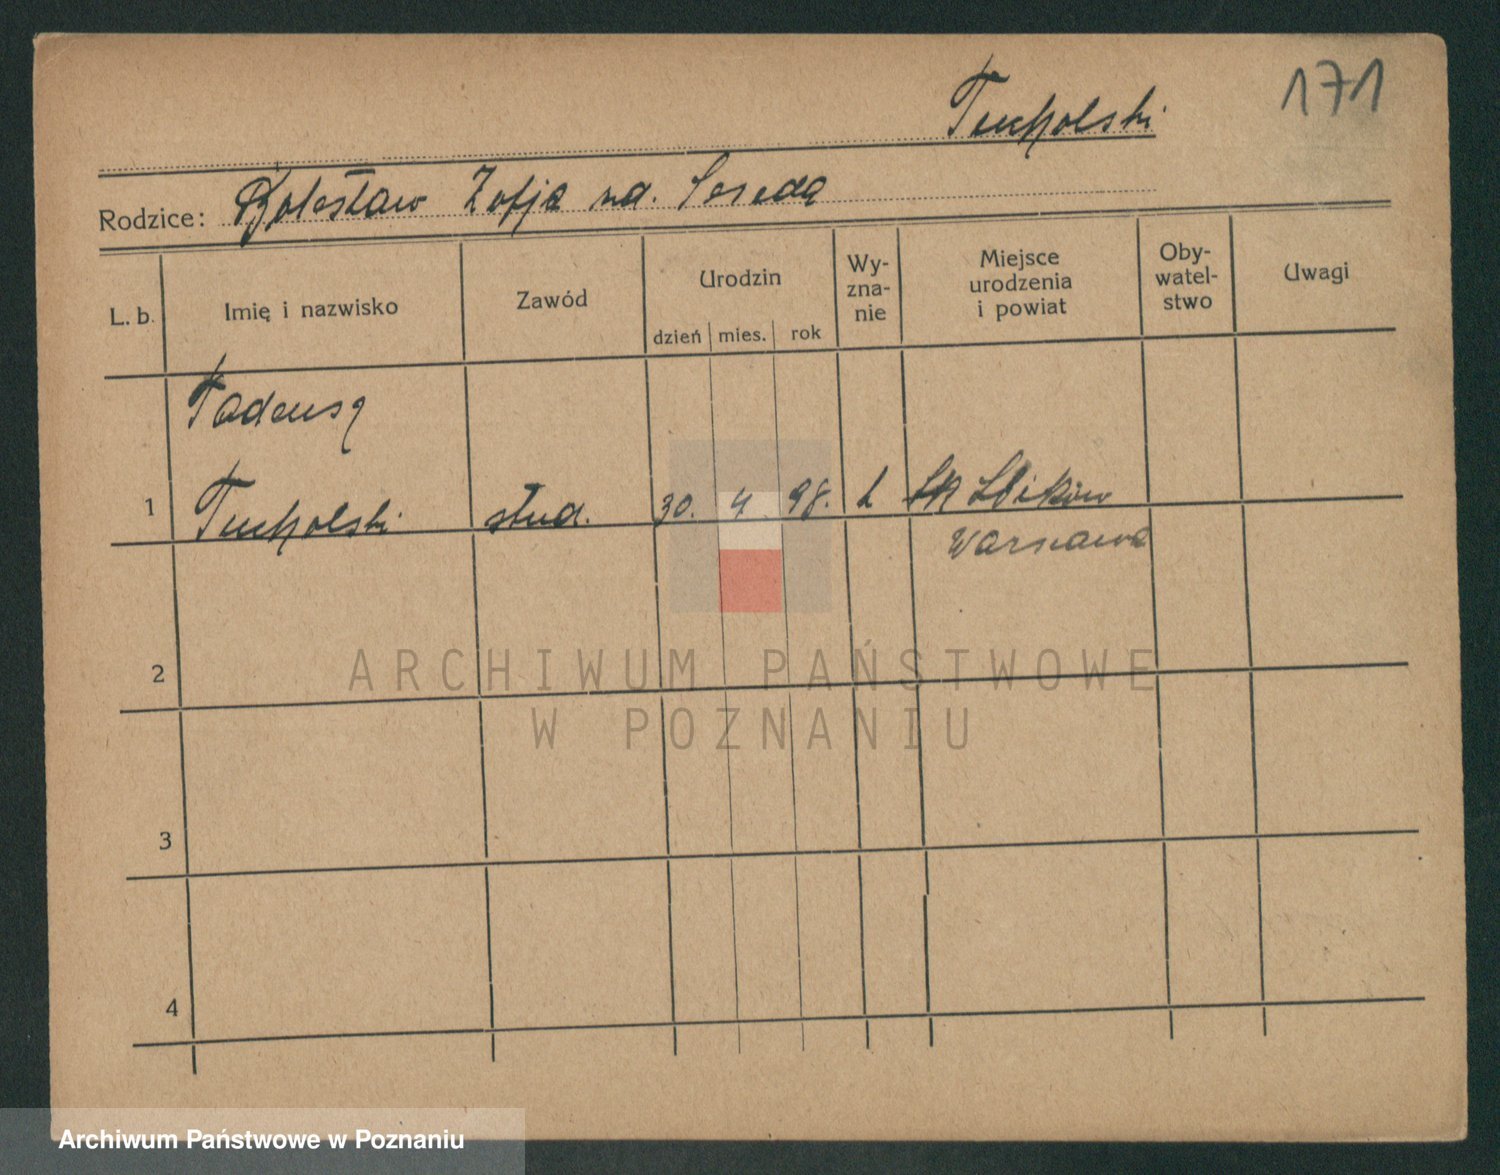 171
Tucholski
Rodzice: Bolesław Zofja ur.
L. b.
Imię i nazwisko
Zawód
Urodzin
dzień
mies.
rok
Wy-
zna-
nie
Miejsce
urodzenia
i powiat
Oby-
watel-
stwo
Uwagi
Tadeusz
1 Tucholski stud. 30. 4 98.
Warszawa
2
3
4
ARCHIWUM PAŃSTWOWE
W POZNANIU
Archiwum Państwowe w Poznaniu